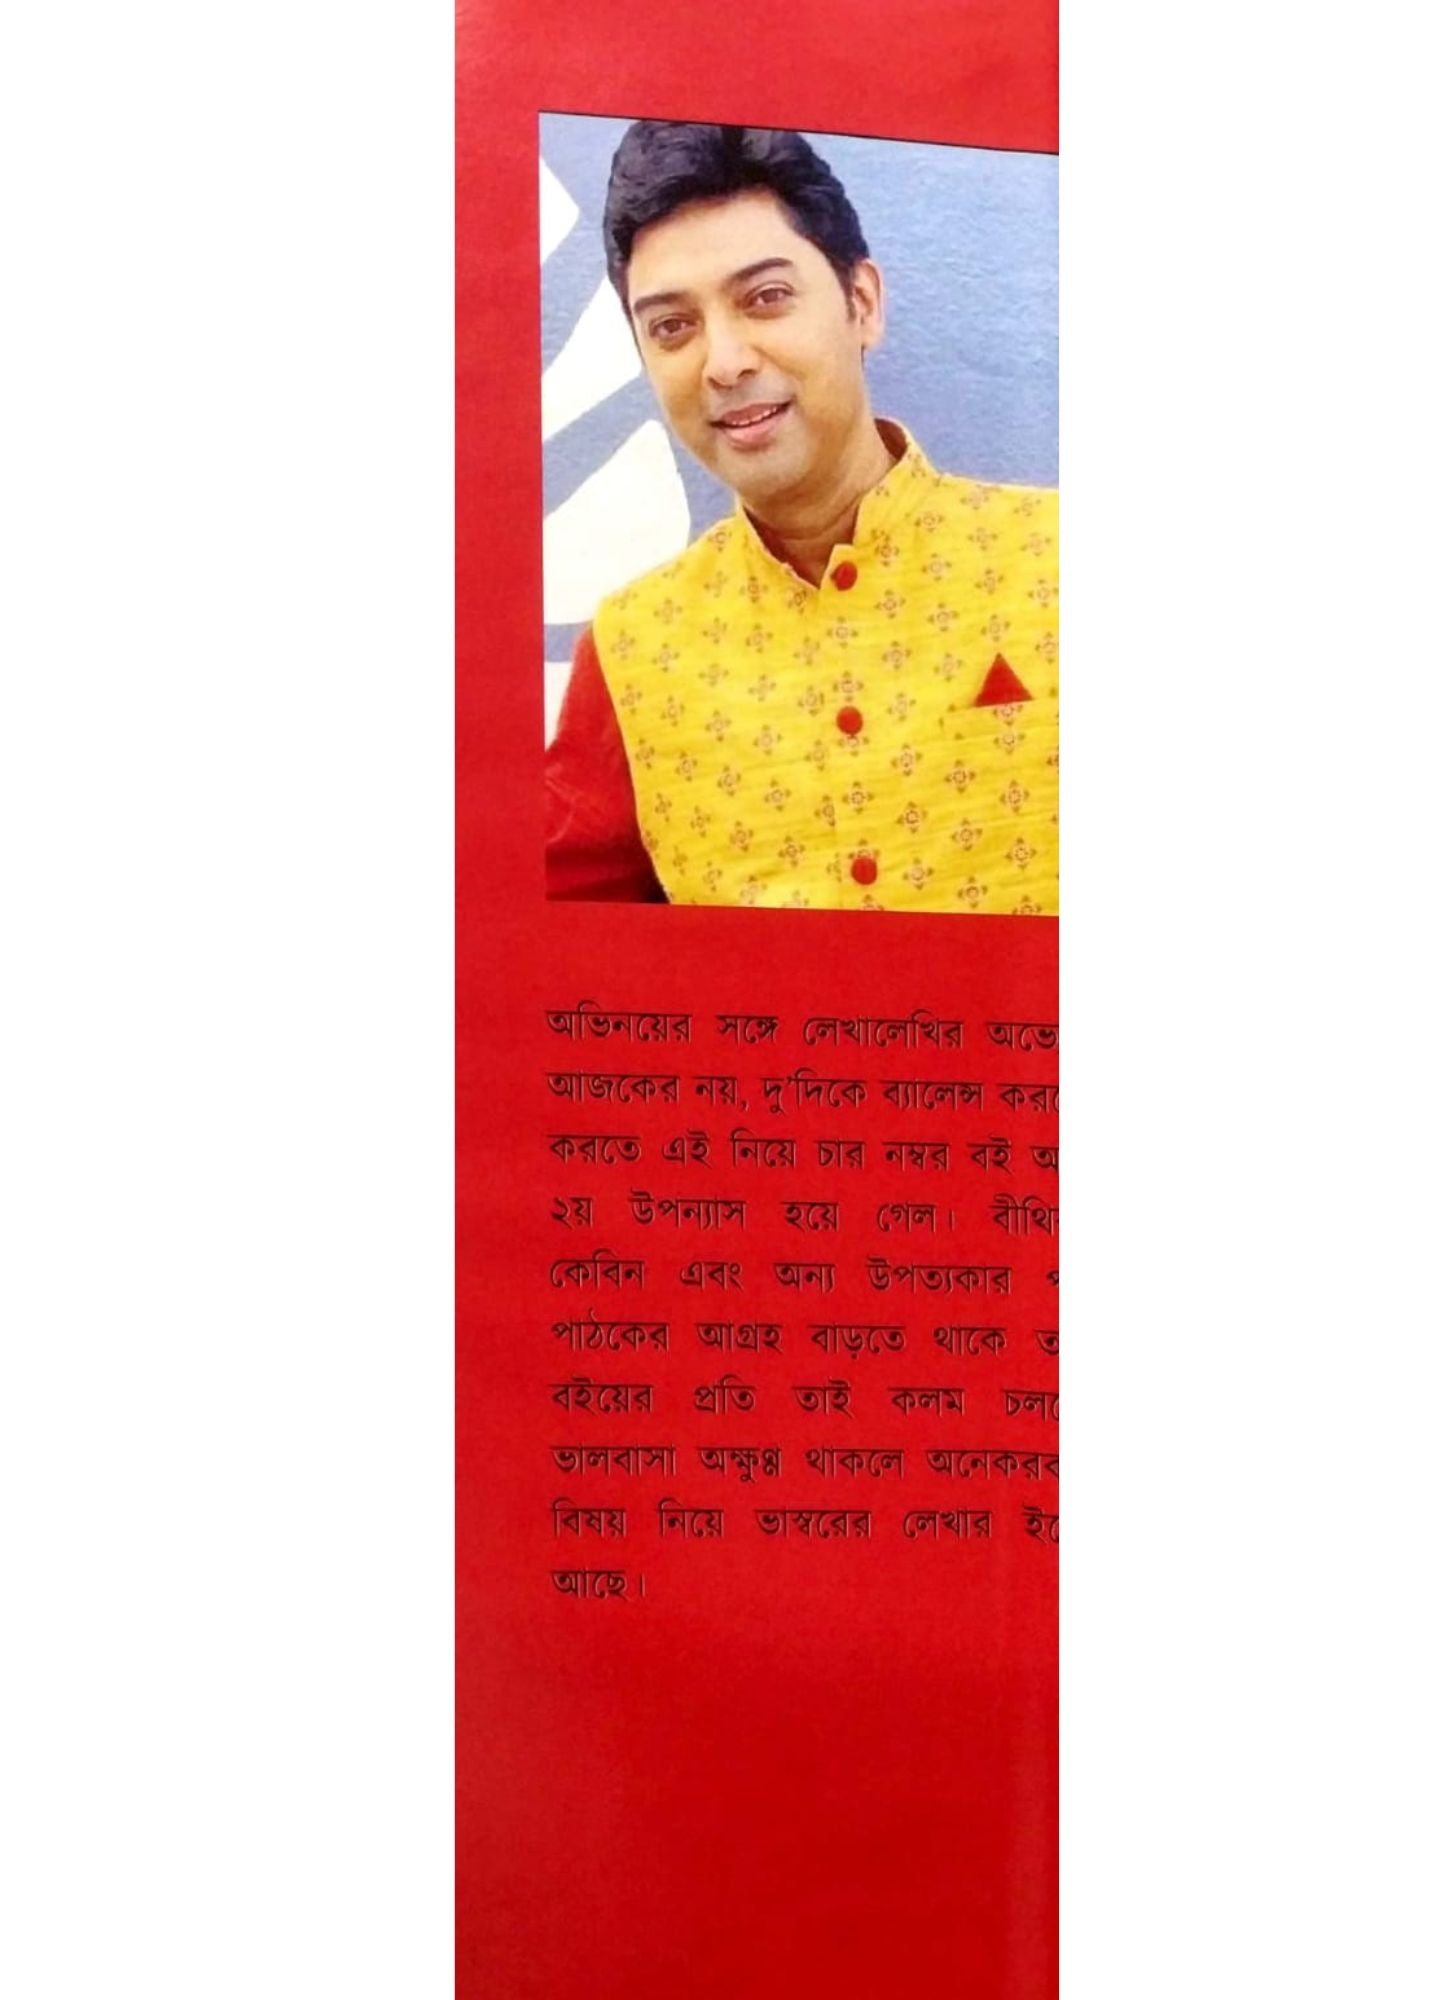 অভিনয়ের সঙ্গে লেখালেখির
আজকের নয়, দু'দিকে ব্যালেন্স
করতে এই নিয়ে চার নম্বর বই
২য় উপন্যাস হয়ে গেল।
কেবিন এবং অন্য উপত্যকার
পাঠকের আগ্রহ বাড়তে থাকে
বইয়ের প্রতি তাই কলম
ভালবাসা অক্ষুণ্ণ থাকলে
বিষয় নিয়ে ভাস্বরের লেখার
আছে।